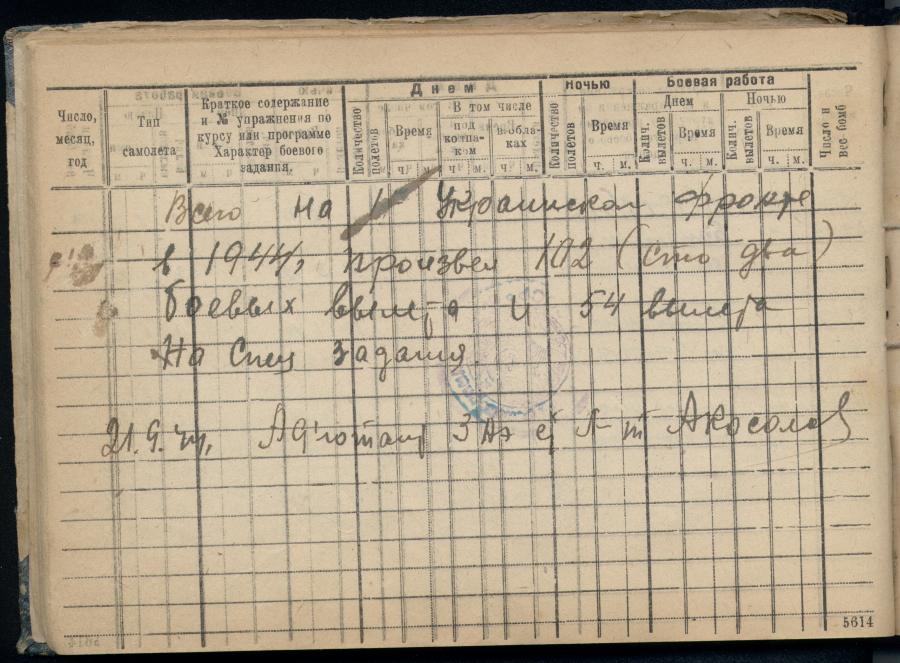 Число, месяц, год
Тип самолета
Краткое содержание и № упражнения по курсу или программе Характер боевого задания.
Днем
Количество полетов
Время
ч. м.
В том числе
под колпаком
ч. м.
в облаках
ч. м.
Ночью
Количество полетов
Время
ч. м.
Боевая работа
Днем
Колич. вылетов
Время
ч. м.
Ночью
Колич. вылетов
Время
ч. м.
Число и вес бомб
Всего на Украинском фронте
в 1944, произвел 102 (сто два)
боевых вылета и 54 вылета
на спец задания
21.9.44, Адъютант 3 АЭ
5614